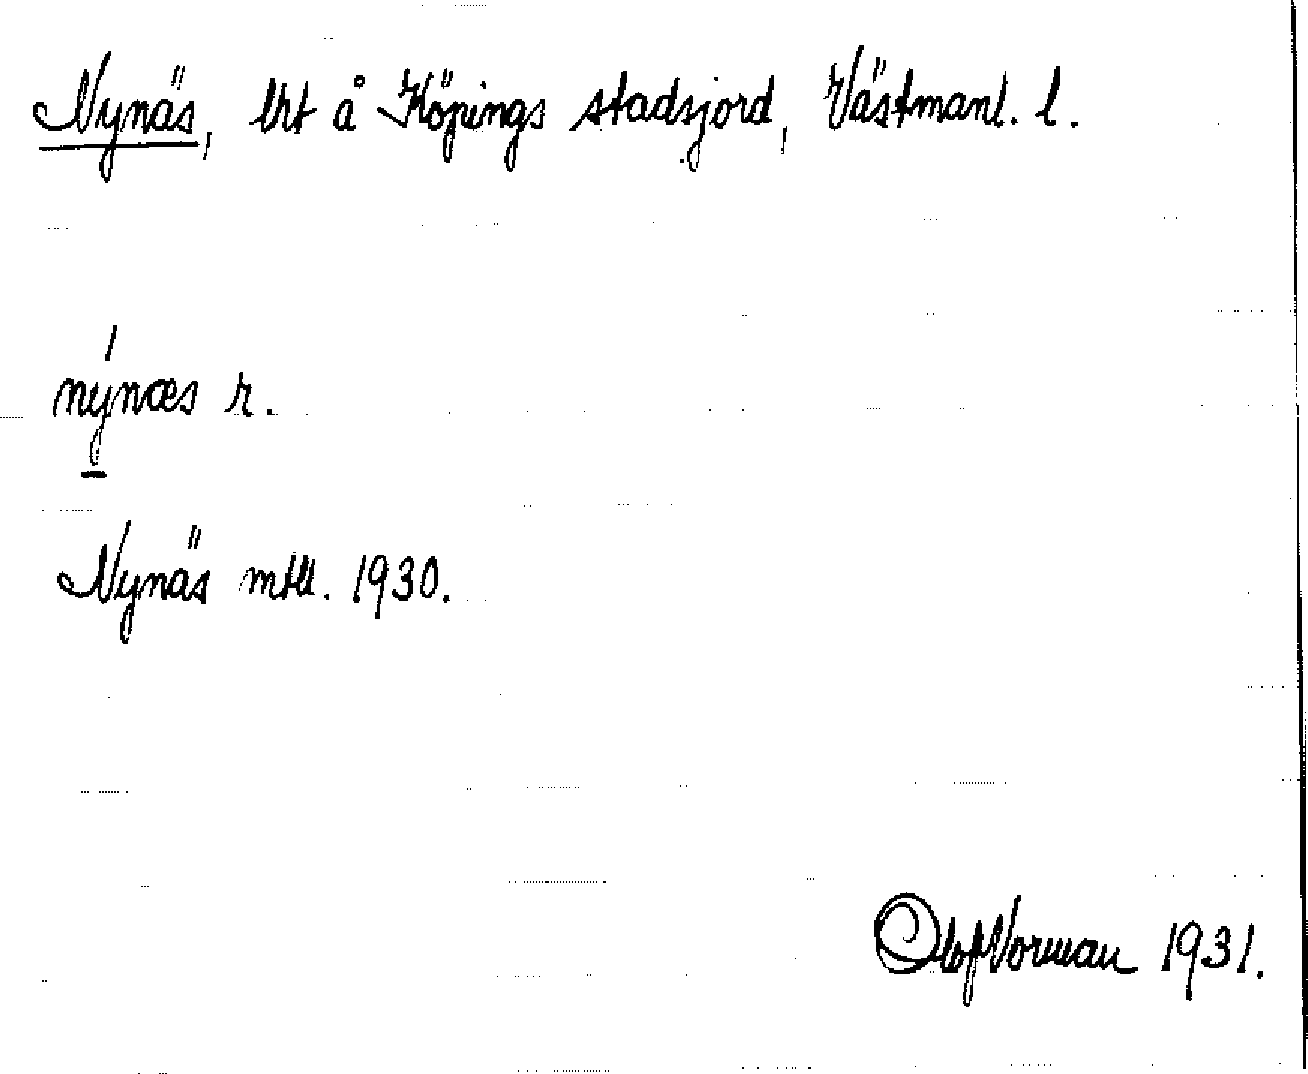 Nynäs, lht å Köpings stadsjord, Västmanl. l.
nýnæs r.
Nynäs mtll. 1930.
Olof Norman 1931.